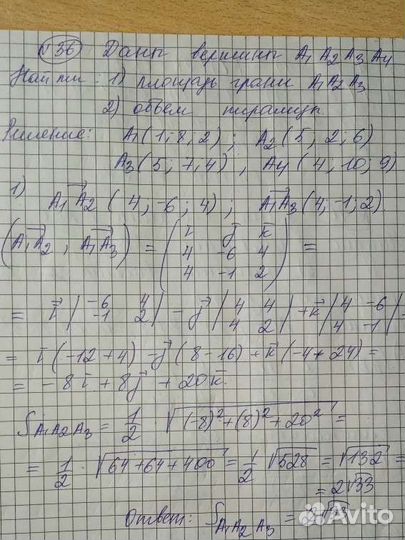 №36 Даны вершины A₁ A₂ A₃ A₄
Найти: 1) площадь грани A₁A₂A₃
2) объем пирамиды
Решение: A₁(1; 8, 2); A₂(5, 2; 6)
A₃(5; 7, 4), A₄(4, 10; 9)
1) A₁A₂ (4; -6; 4); A₁A₃(4, -1; 2).
(A₁A₂, A₁A₃) = | i j k |
| 4 -6 4 | =
| 4 -1 2 |
= i | -6 4 | - j | 4 4 | + k | 4 -6 |
| -1 2 | | 4 2 | | 4 -1 |
= i (-12+4) - j (8-16) + k (-4+24) =
= -8i + 8j + 20k.
S A₁A₂A₃ = 1/2 √((-8)²+(8)²+20²) =
= 1/2 · √(64+64+400) = 1/2 √528 = √132 =
= 2√33
Ответ: S A₁A₂A₃ = 2√33
Avito